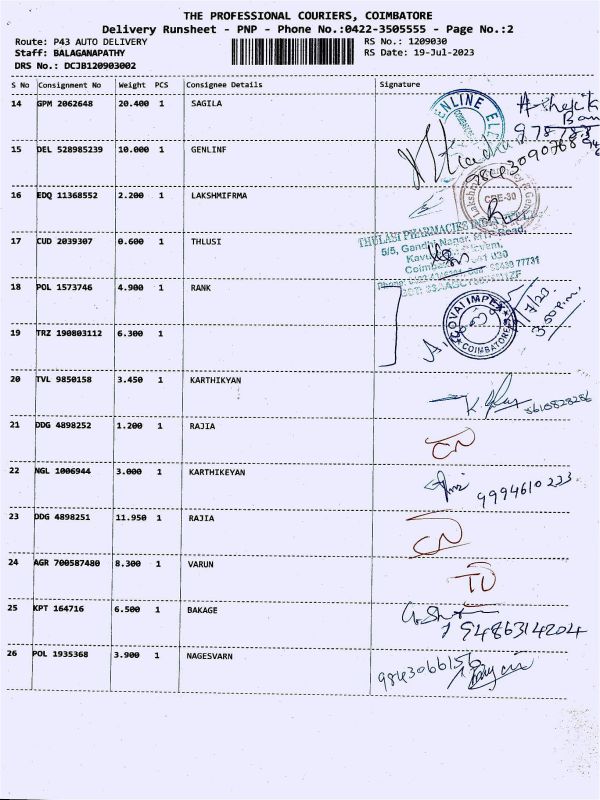 THE PROFESSIONAL COURIERS, COIMBATORE
Delivery Runsheet - PNP - Phone No.:0422-3505555 - Page No.:2
Route: P43 AUTO DELIVERY RS No.: 1209030
Staff: BALAGANAPATHY RS Date: 19-Jul-2023
DRS No.: DCJB120903002
S No Consignment No Weight PCS Consignee Details Signature
14 GPM 2062648 20.400 1 SAGILA
15 DEL 528985239 10.000 1 GENLINF
16 EDQ 11368552 2.200 1 LAKSHMIFRMA
CBE-30
17 CUD 2039307 0.600 1 THLUSI
THULASI PHARMACIES
5/5, Gandhi Nagar,
18 POL 1573746 4.900 1 RANK
COVAI IMPEX
COIMBATORE
3.50 p.m.
19 TRZ 190803112 6.300 1
20 TVL 9850158 3.450 1 KARTHIKYAN
21 DDG 4898252 1.200 1 RAJIA
22 NGL 1006944 3.000 1 KARTHIKEYAN
9994610223
23 DDG 4898251 11.950 1 RAJIA
24 AGR 700587480 8.300 1 VARUN
25 KPT 164716 6.500 1 BAKAGE
9486314204
26 POL 1935368 3.900 1 NAGESVARN
9843066156